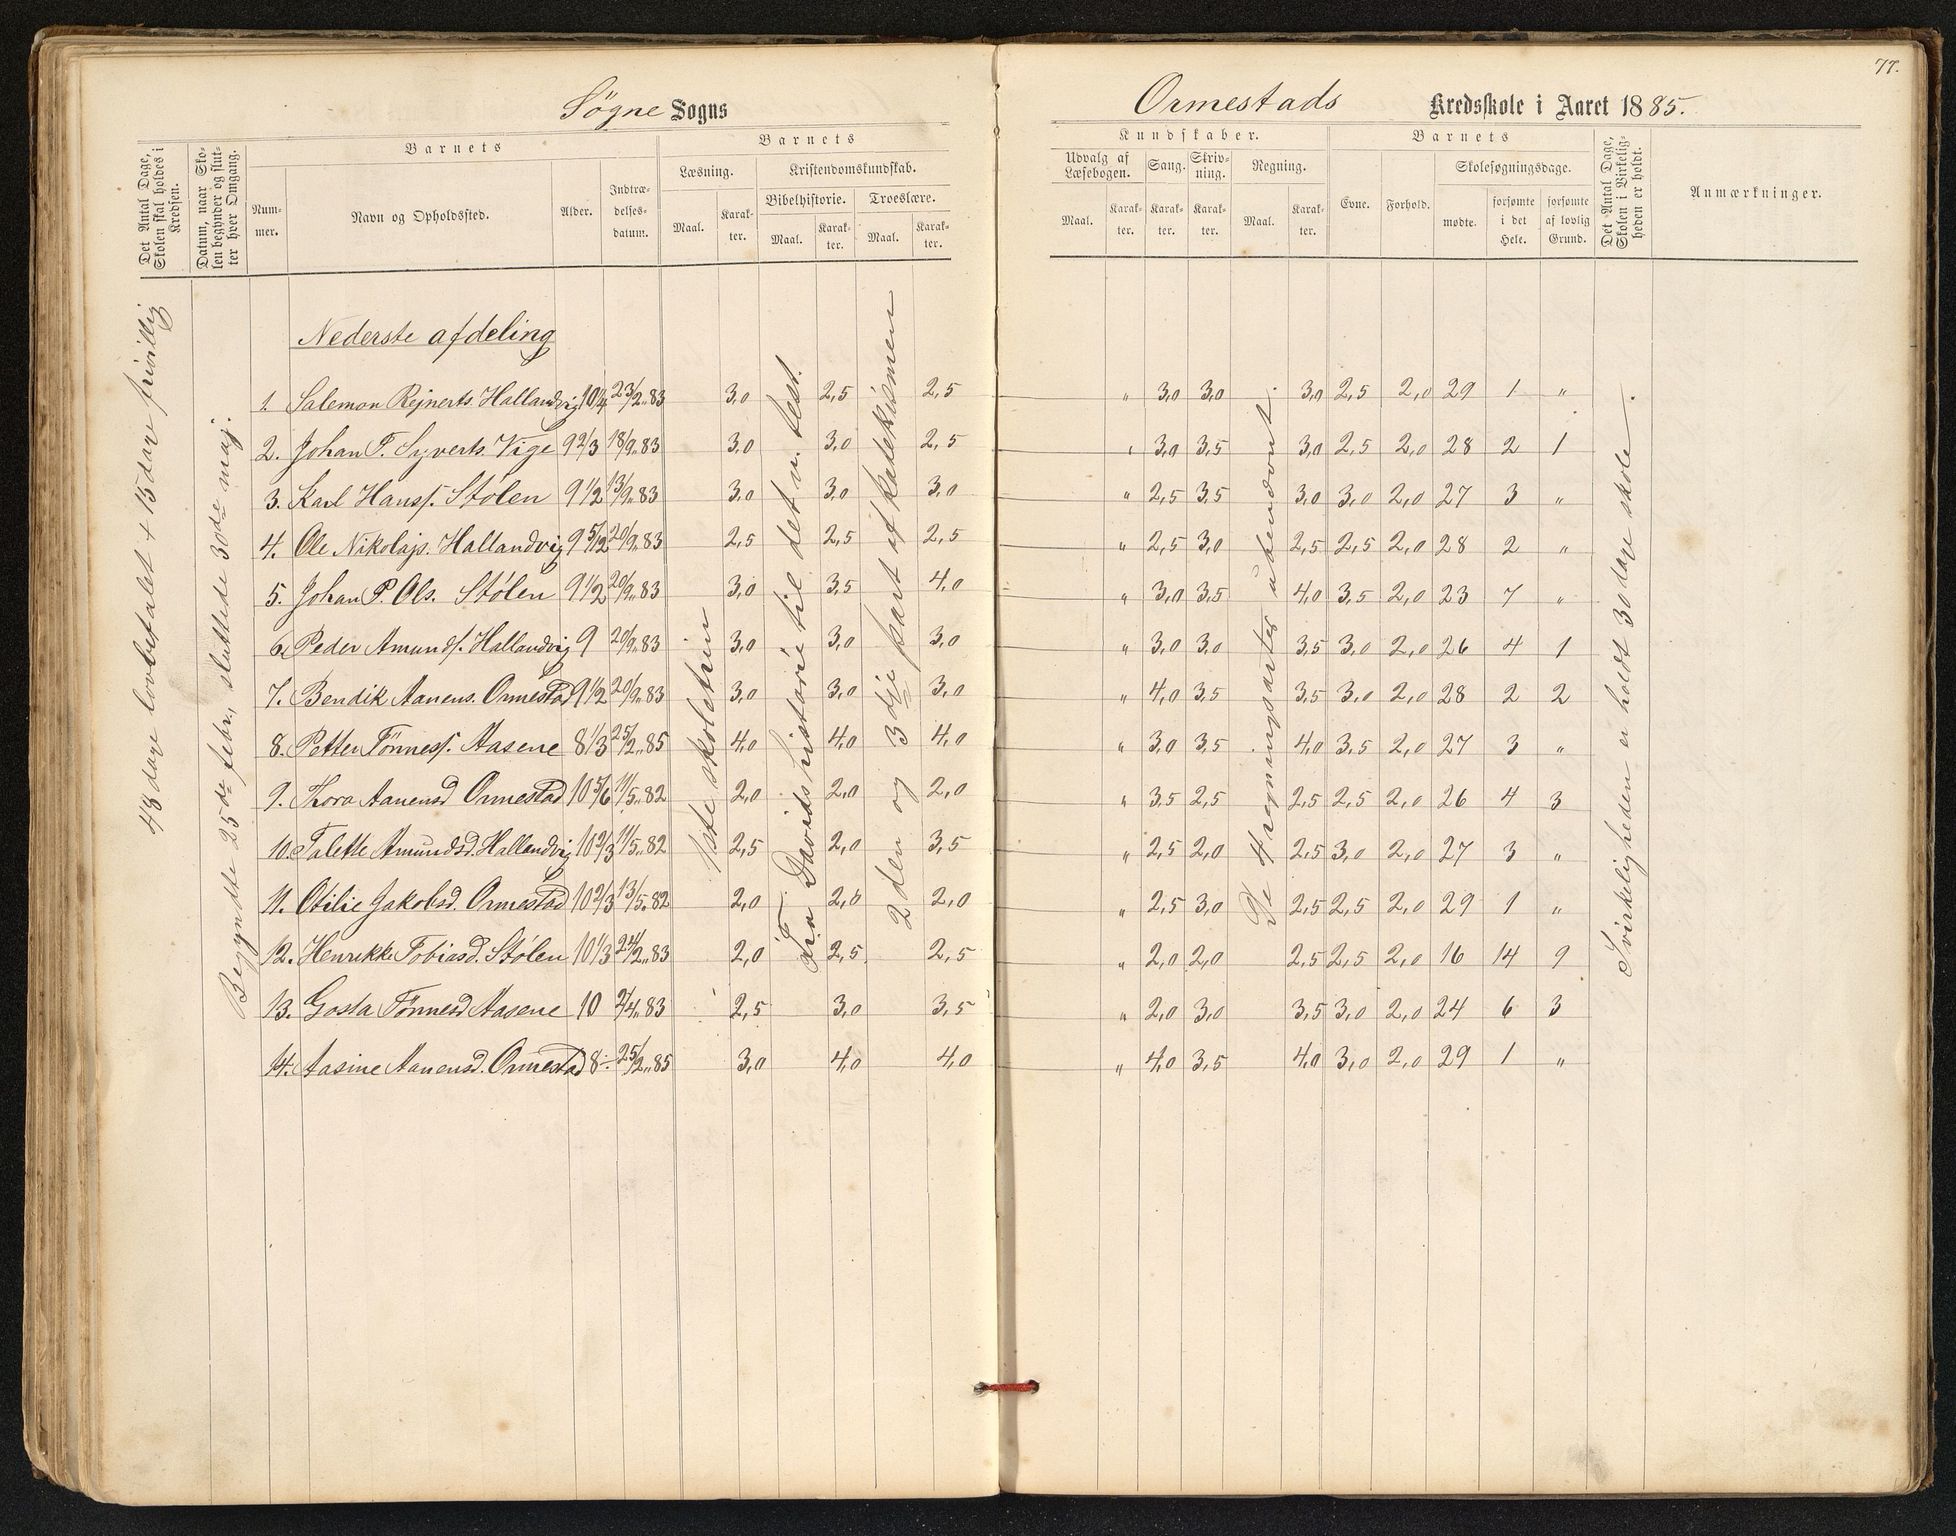 77.
Søgne Sogns Ormestads Kredsskole i Aaret 1885.
Det Antal Dage, Skolen skal holdes i Kredsen.
Datum, naar Skolen begynder og slutter hver Omgang.
Barnets
Nummer.
Navn og Opholdssted.
Alder.
Indtrædelsesdatum.
Barnets
Læsning.
Maal.
Karakter.
Kristendomskundskab.
Bibelhistorie.
Maal.
Karakter.
Troeslære.
Maal.
Karakter.
Kundskaber.
Udvalg af Læsebogen.
Maal.
Karakter.
Sang.
Karakter.
Skrivning.
Karakter.
Regning.
Maal.
Karakter.
Barnets
Evne.
Forhold.
Skolesøgningsdage.
mødte.
forsømte i det Hele.
forsømte af lovlig Grund.
Det Antal Dage, Skolen i Virkeligheden er holdt.
Anmærkninger.
48 dage lovbetalet + 15 dage frivillig
Begyndte 25de febr., sluttede 30de maj.
Nederste afdeling
1. Salemon Rejnerts. Hallandvig 10 1/4 23/2.. 83 3,0 2,5 2,5 " 3,0 3,0 3,0 2,5 2,0 29 1 "
2. Johan T. Syverts. Vige 9 2/3 18/9.. 83 3,0 3,0 2,5 " 3,0 3,5 3,0 2,5 2,0 28 2 1
3. Karl Hanss. Stølen 9 1/2 13/9.. 83 3,0 3,0 3,0 " 2,5 3,5 3,0 3,0 2,0 27 3 "
4. Ole Nikolajs. Hallandvig 9 5/12 20/9.. 83 2,5 2,5 2,5 " 2,5 3,0 2,5 2,5 2,0 28 2 "
5. Johan P. Ols. Stølen 9 1/2 20/9.. 83 3,0 3,5 4,0 " 3,0 3,5 4,0 3,5 2,0 23 7 "
6. Peder Amunds. Hallandvig 9 20/9.. 83 3,0 3,0 3,0 " 3,0 3,0 3,5 3,0 2,0 26 4 1
7. Bendik Aanens. Ormestad 9 1/2 20/9.. 83 3,0 3,0 3,0 " 4,0 3,5 3,5 3,0 2,0 28 2 2
8. Petter Tønness. Aasene 8 1/3 25/2.. 85 4,0 4,0 4,0 " 3,0 3,5 4,0 3,5 2,0 27 3 "
9. Thora Aanensd Ormestad 10 5/6 11/5.. 82 2,0 2,0 2,0 " 3,5 2,5 2,5 2,5 2,0 26 4 3
10. Talette Amundsd. Hallandvig 10 2/3 11/5.. 82 2,5 2,0 3,5 " 2,5 2,0 2,5 3,0 2,0 27 3 "
11. Otilie Jakobsd. Ormestad 10 2/3 13/5.. 82 2,0 2,0 2,0 " 2,5 3,0 2,5 2,5 2,0 29 1 "
12. Henrikke Tobiasd. Stølen 10 1/3 24/2.. 83 2,0 2,5 2,5 " 2,0 2,0 2,5 2,5 2,0 16 14 9
13. Gosta Tønnesd Aasene 10 2/4.. 83 2,5 3,0 3,5 " 2,0 3,0 3,5 3,0 2,0 24 6 3
14. Aasine Aanensd. Ormestad 8 25/2.. 85 3,0 4,0 4,0 " 4,0 3,5 4,0 3,0 2,0 29 1 "
1ste skoletrin
Fra Davids historie til det n. test.
2den og 3dje part af katekismen
De 4 regningsarter ubenævnt.
I virkeligheden er holdt 30 dage skole.